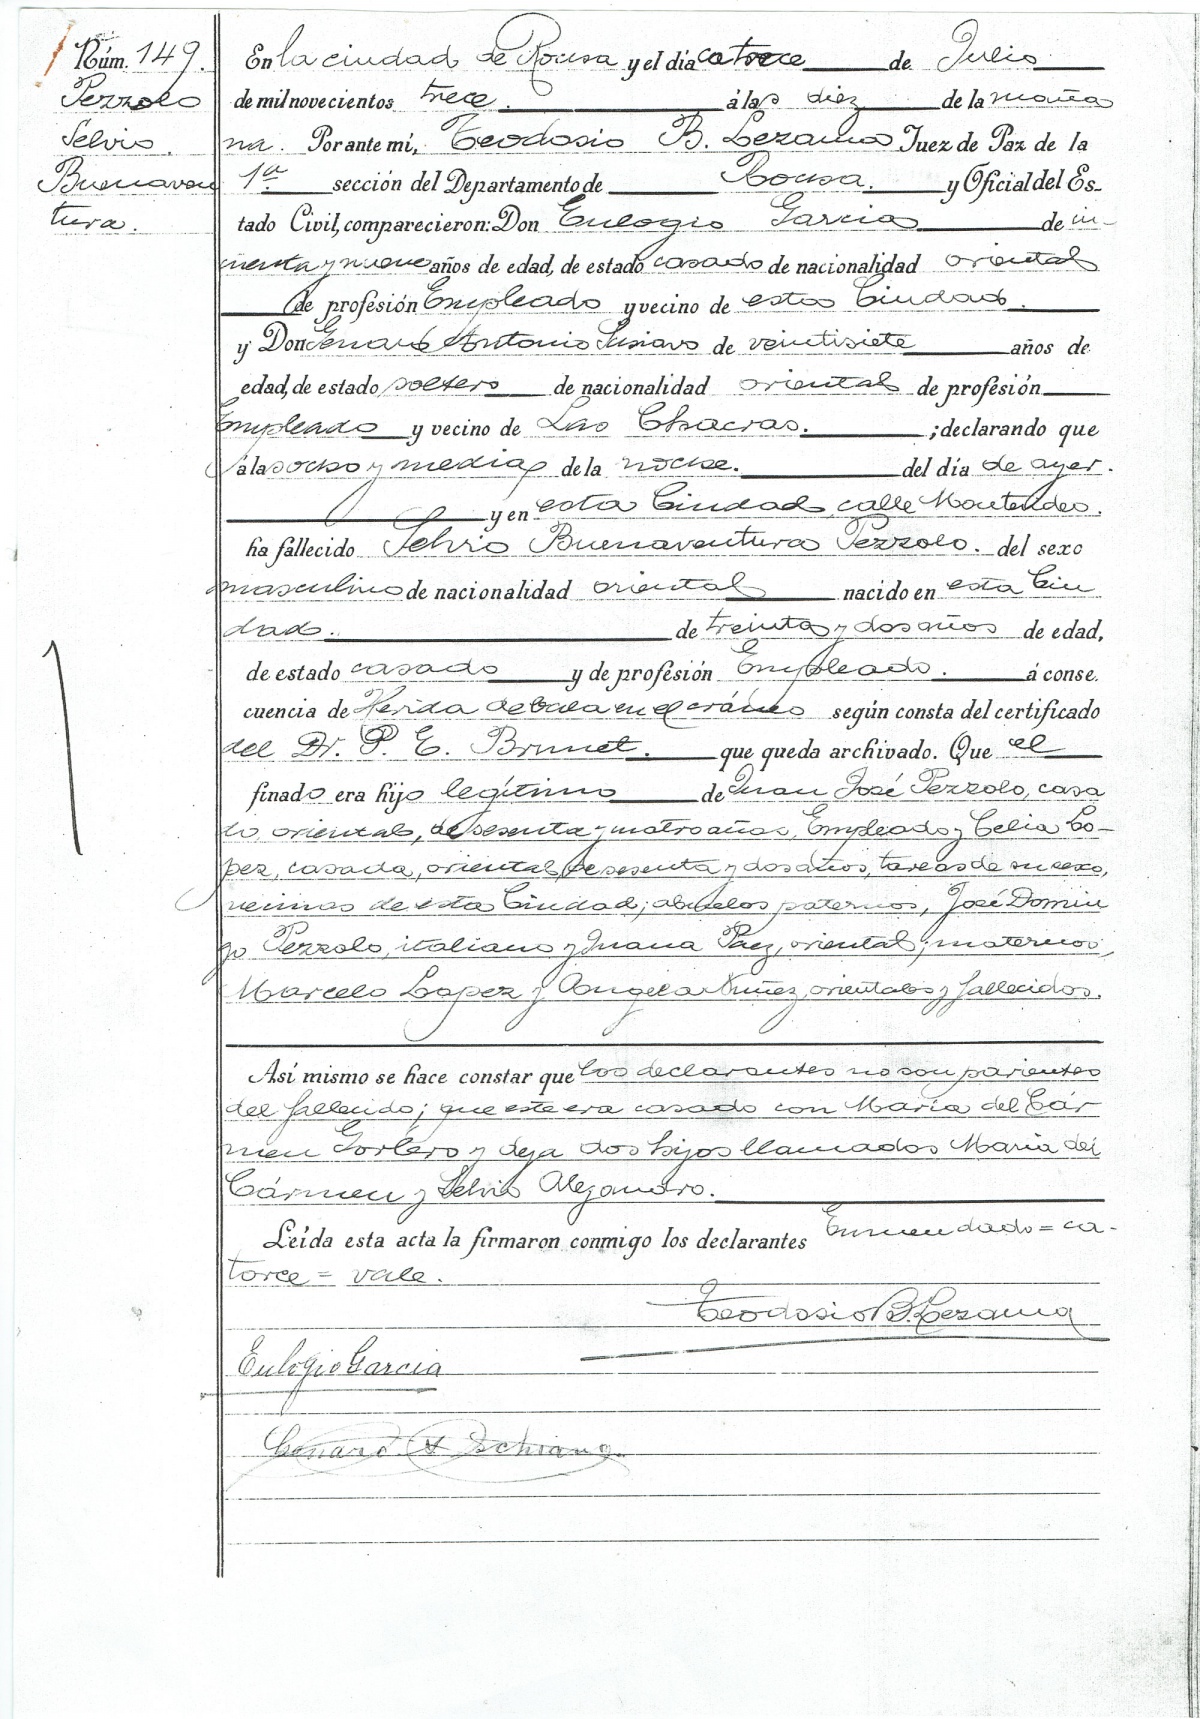 Núm. 149.
Pezzolo
Selvio
Buenaven
tura.
En la ciudad de Rocha y el día catorce de Julio
de mil novecientos trece. á las diez de la maña
na. Por ante mí, Teodosio B. Lezama Juez de Paz de la
1ª sección del Departamento de Rocha. y Oficial del Es-
tado Civil, comparecieron: Don Eulogio Garcia de cin-
cuenta y nueve años de edad, de estado casado de nacionalidad oriental
de profesión Empleado y vecino de esta Ciudad.
y Don Genaro Antonio de veintisiete años de
edad, de estado soltero de nacionalidad oriental de profesión
Empleado y vecino de Las Chacras. ; declarando que
á las ocho y media de la noche. del día de ayer.
y en esta Ciudad calle Montevideo.
ha fallecido Selvio Buenaventura Pezzolo. del sexo
masculino de nacionalidad oriental nacido en esta Ciu
dad. de treinta y dos años de edad,
de estado casado y de profesión Empleado. á conse
cuencia de Herida de bala en el cráneo según consta del certificado
del Dr. P. E. Brunet. que queda archivado. Que el
finado era hijo legítimo de Juan José Pezzolo, casa
do, oriental, de sesenta y cuatro años, Empleado y Celia Lo-
pez, casada, oriental, de sesenta y dos años, tareas de su sexo,
vecinos de esta Ciudad; abuelos paternos, José Domin
go Pezzolo, italiano y Juana Paez, oriental; maternos,
Marcelo Lopez y Angela Nuñez, orientales y fallecidos.
Así mismo se hace constar que los declarantes no son parientes
del fallecido; que este era casado con María del Cár
men Gorlero y deja dos hijos llamados María del
Cármen y Selvio Alejandro.
Leída esta acta la firmaron conmigo los declarantes Enmendado = ca-
torce = vale.
Teodosio B. Lezama
Eulogio Garcia
Genaro A.